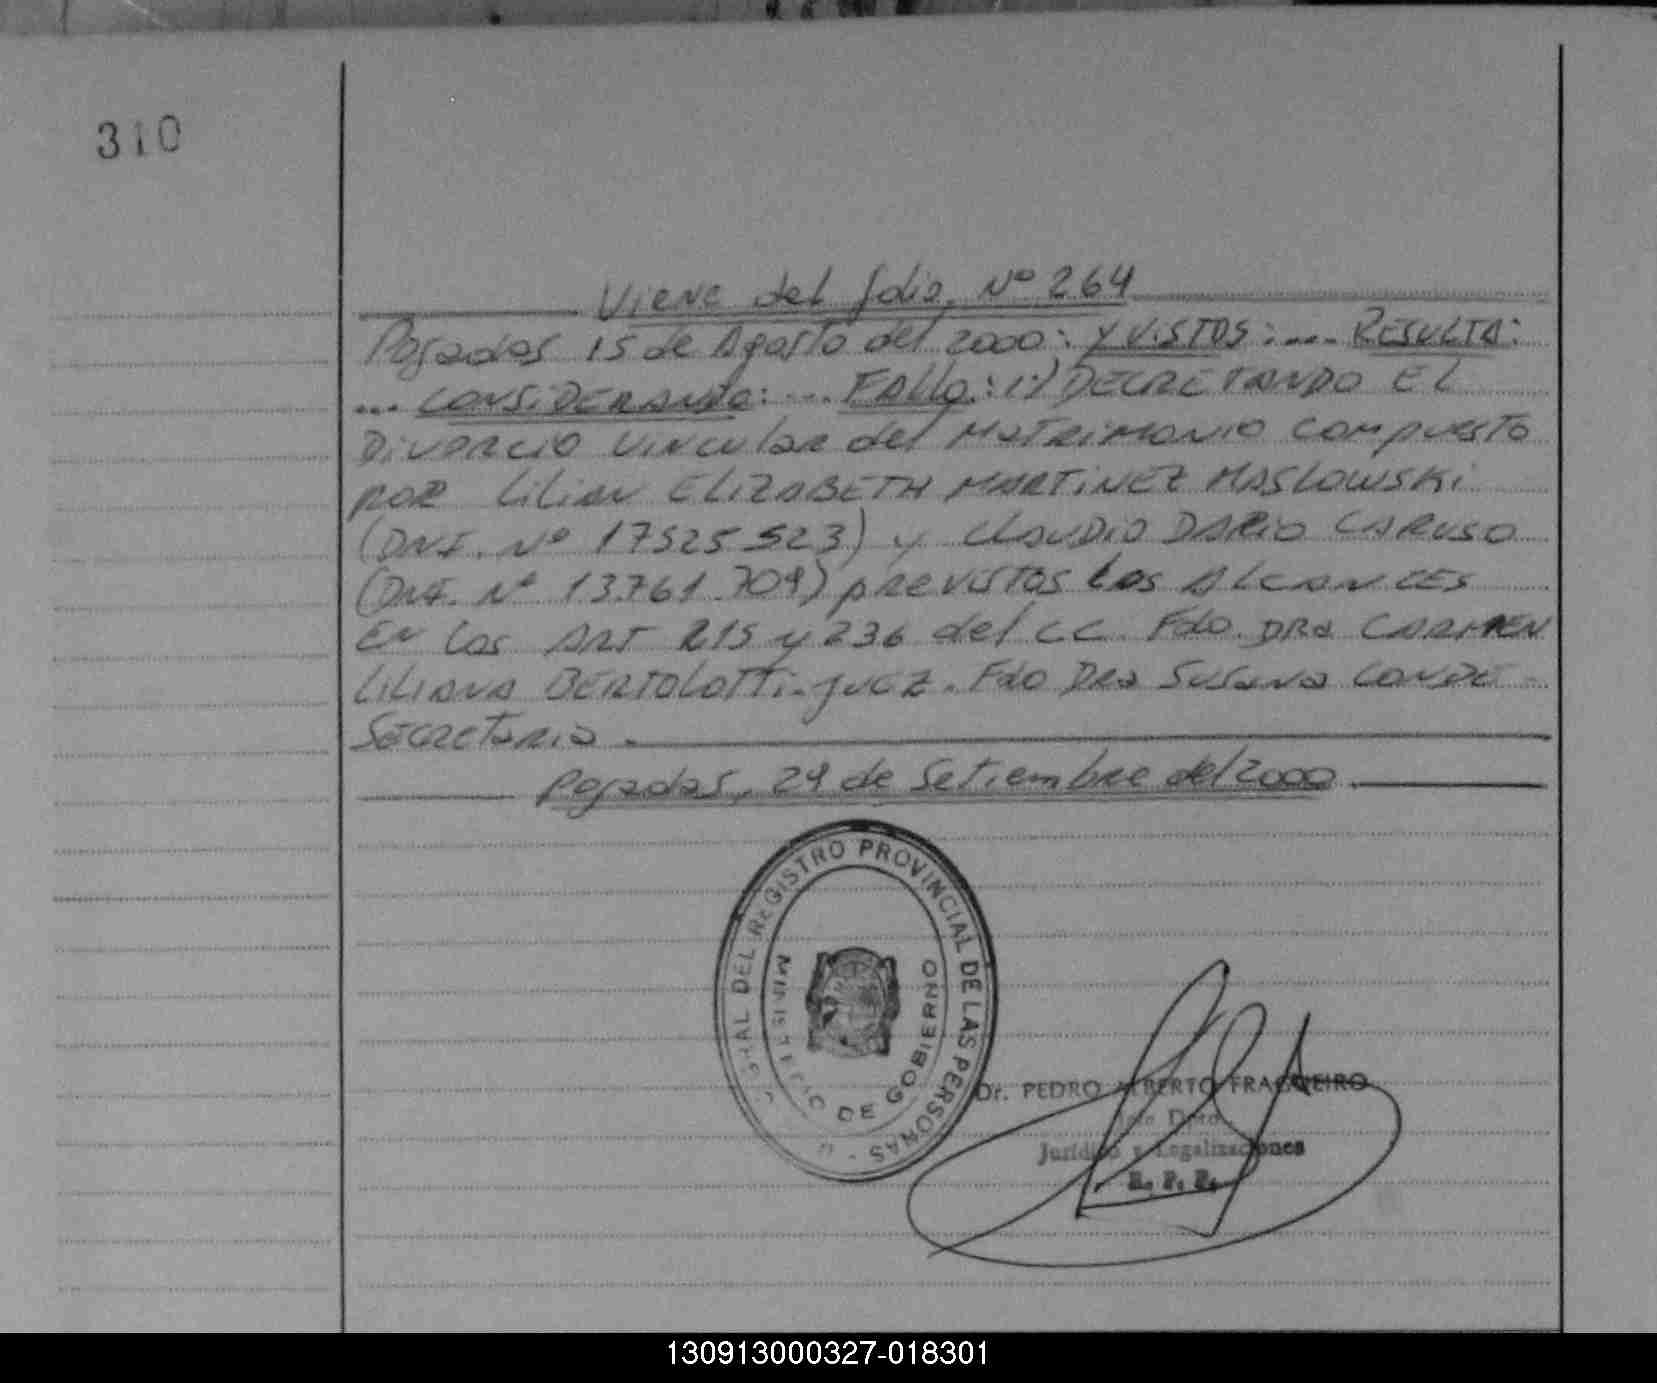 310
Viene del folio Nº 264
Posadas 15 de Agosto del 2000: Y VISTOS: ... RESULTA:
... CONSIDERANDO: ... FALLO: 1:) DECRETANDO EL
DiVORCIO VINCULAR del MATRIMONIO COMPUESTO
POR LiLiAN ELIZABETH MARTiNEZ MASLOWSKi
(DNI. Nº 17525523) y CLAUDIO DARIO CARUSO
(DNI. Nº 13.761.709) PREVISTOS Los ALCANCES
EN Los ART 215 y 236 del CC. Fdo. DRa CARMEN
LILIANA BERTOLOTTi - JUEZ. Fdo DRa SUSANA CONDE -
SECRETARIA.
Posadas, 29 de Setiembre del 2000
RAL DEL REGISTRO PROVINCIAL DE LAS PERSONAS -
MINISTERIO DE GOBIERNO
Dr. PEDRO ALBERTO FRAGUEIRO
Jefe Dpto.
Jurídico y Legalizaciones
R. P. P.
130913000327-018301